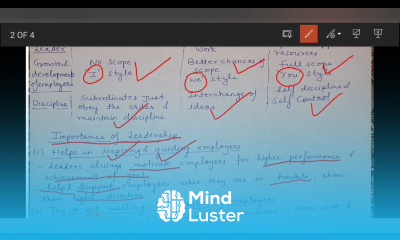 2 OF 4
Leader Work resources
Growth & No scope Better chances of Full scope
development "I" style scope "You" style
of employees "We" style Self disciplined
Discipline Subordinates just Interchange of Self Control
obey the order & Ideas
maintain discipline
Importance of Leadership
(1) Helps in inspiring & guiding employees
- Leaders always motivate employees for higher performance &
achievement of goal
help & support employees when they are in trouble, show
them right direction
(2) Try to get employees
Mind
Luster